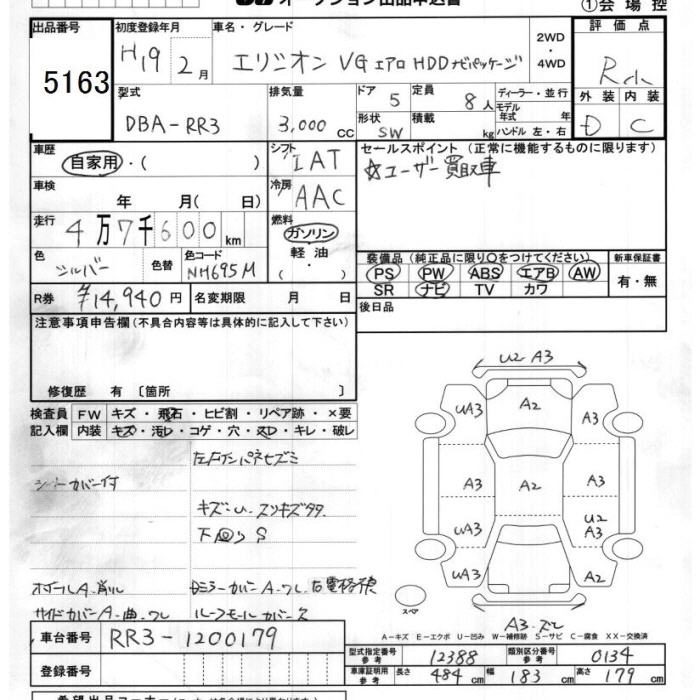 オークション出品申込書
①会場控
出品番号 5163
初度登録年月 H19 2月
車名・グレード エリシオン VG エアロ HDD ナビパッケージ
2WD・4WD
評価点
外装 内装
D C
型式 DBA-RR3
排気量 3,000 CC
ドア 5
定員 8人
形状 SW
積載 kg
ディーラー・並行
モデル年式 年式
ハンドル 左・右
車歴 自家用・( )
シフト IAT
セールスポイント (正常に機能するものに限ります)
☆ユーザー買取車
車検 年 月( 日)
冷房 AAC
走行 4万7千600km
燃料 ガソリン
・
軽油
( )
色 シルバー
色替
色コード NH695M
装備品 (純正品に限り○をつけてください)
PS PW ABS エアB AW
SR ナビ TV カワ
新車保証書
有・無
R券 ¥14,940円
名変期限 月 日
後日品
注意事項申告欄 (不具合内容等は具体的に記入して下さい)
修復歴 有 [箇所 ]
検査員記入欄
FW キズ・飛石・ヒビ割・リペア跡・×要
内装 キズ・汚レ・コゲ・穴・スレ・キレ・破レ
シートカバー付
キズ・U・スリキズタタ
下回りS
ホイールA・削ル
サイドカバーA・曲・ワレ
ルーフモールカバー欠
U2 A3
UA3 A2 A3
A3 A2 A3
UA3 U2 A3
UA3 A2
スペア
A-キズ E-エクボ U-凹み W-補修跡 S-サビ C-腐食 XX-交換済
車台番号 RR3-1200179
登録番号
型式指定番号 参考 12388
類別区分番号 参考 0134
車検証明用 参考 長さ 484cm 幅 183cm 高さ 179cm